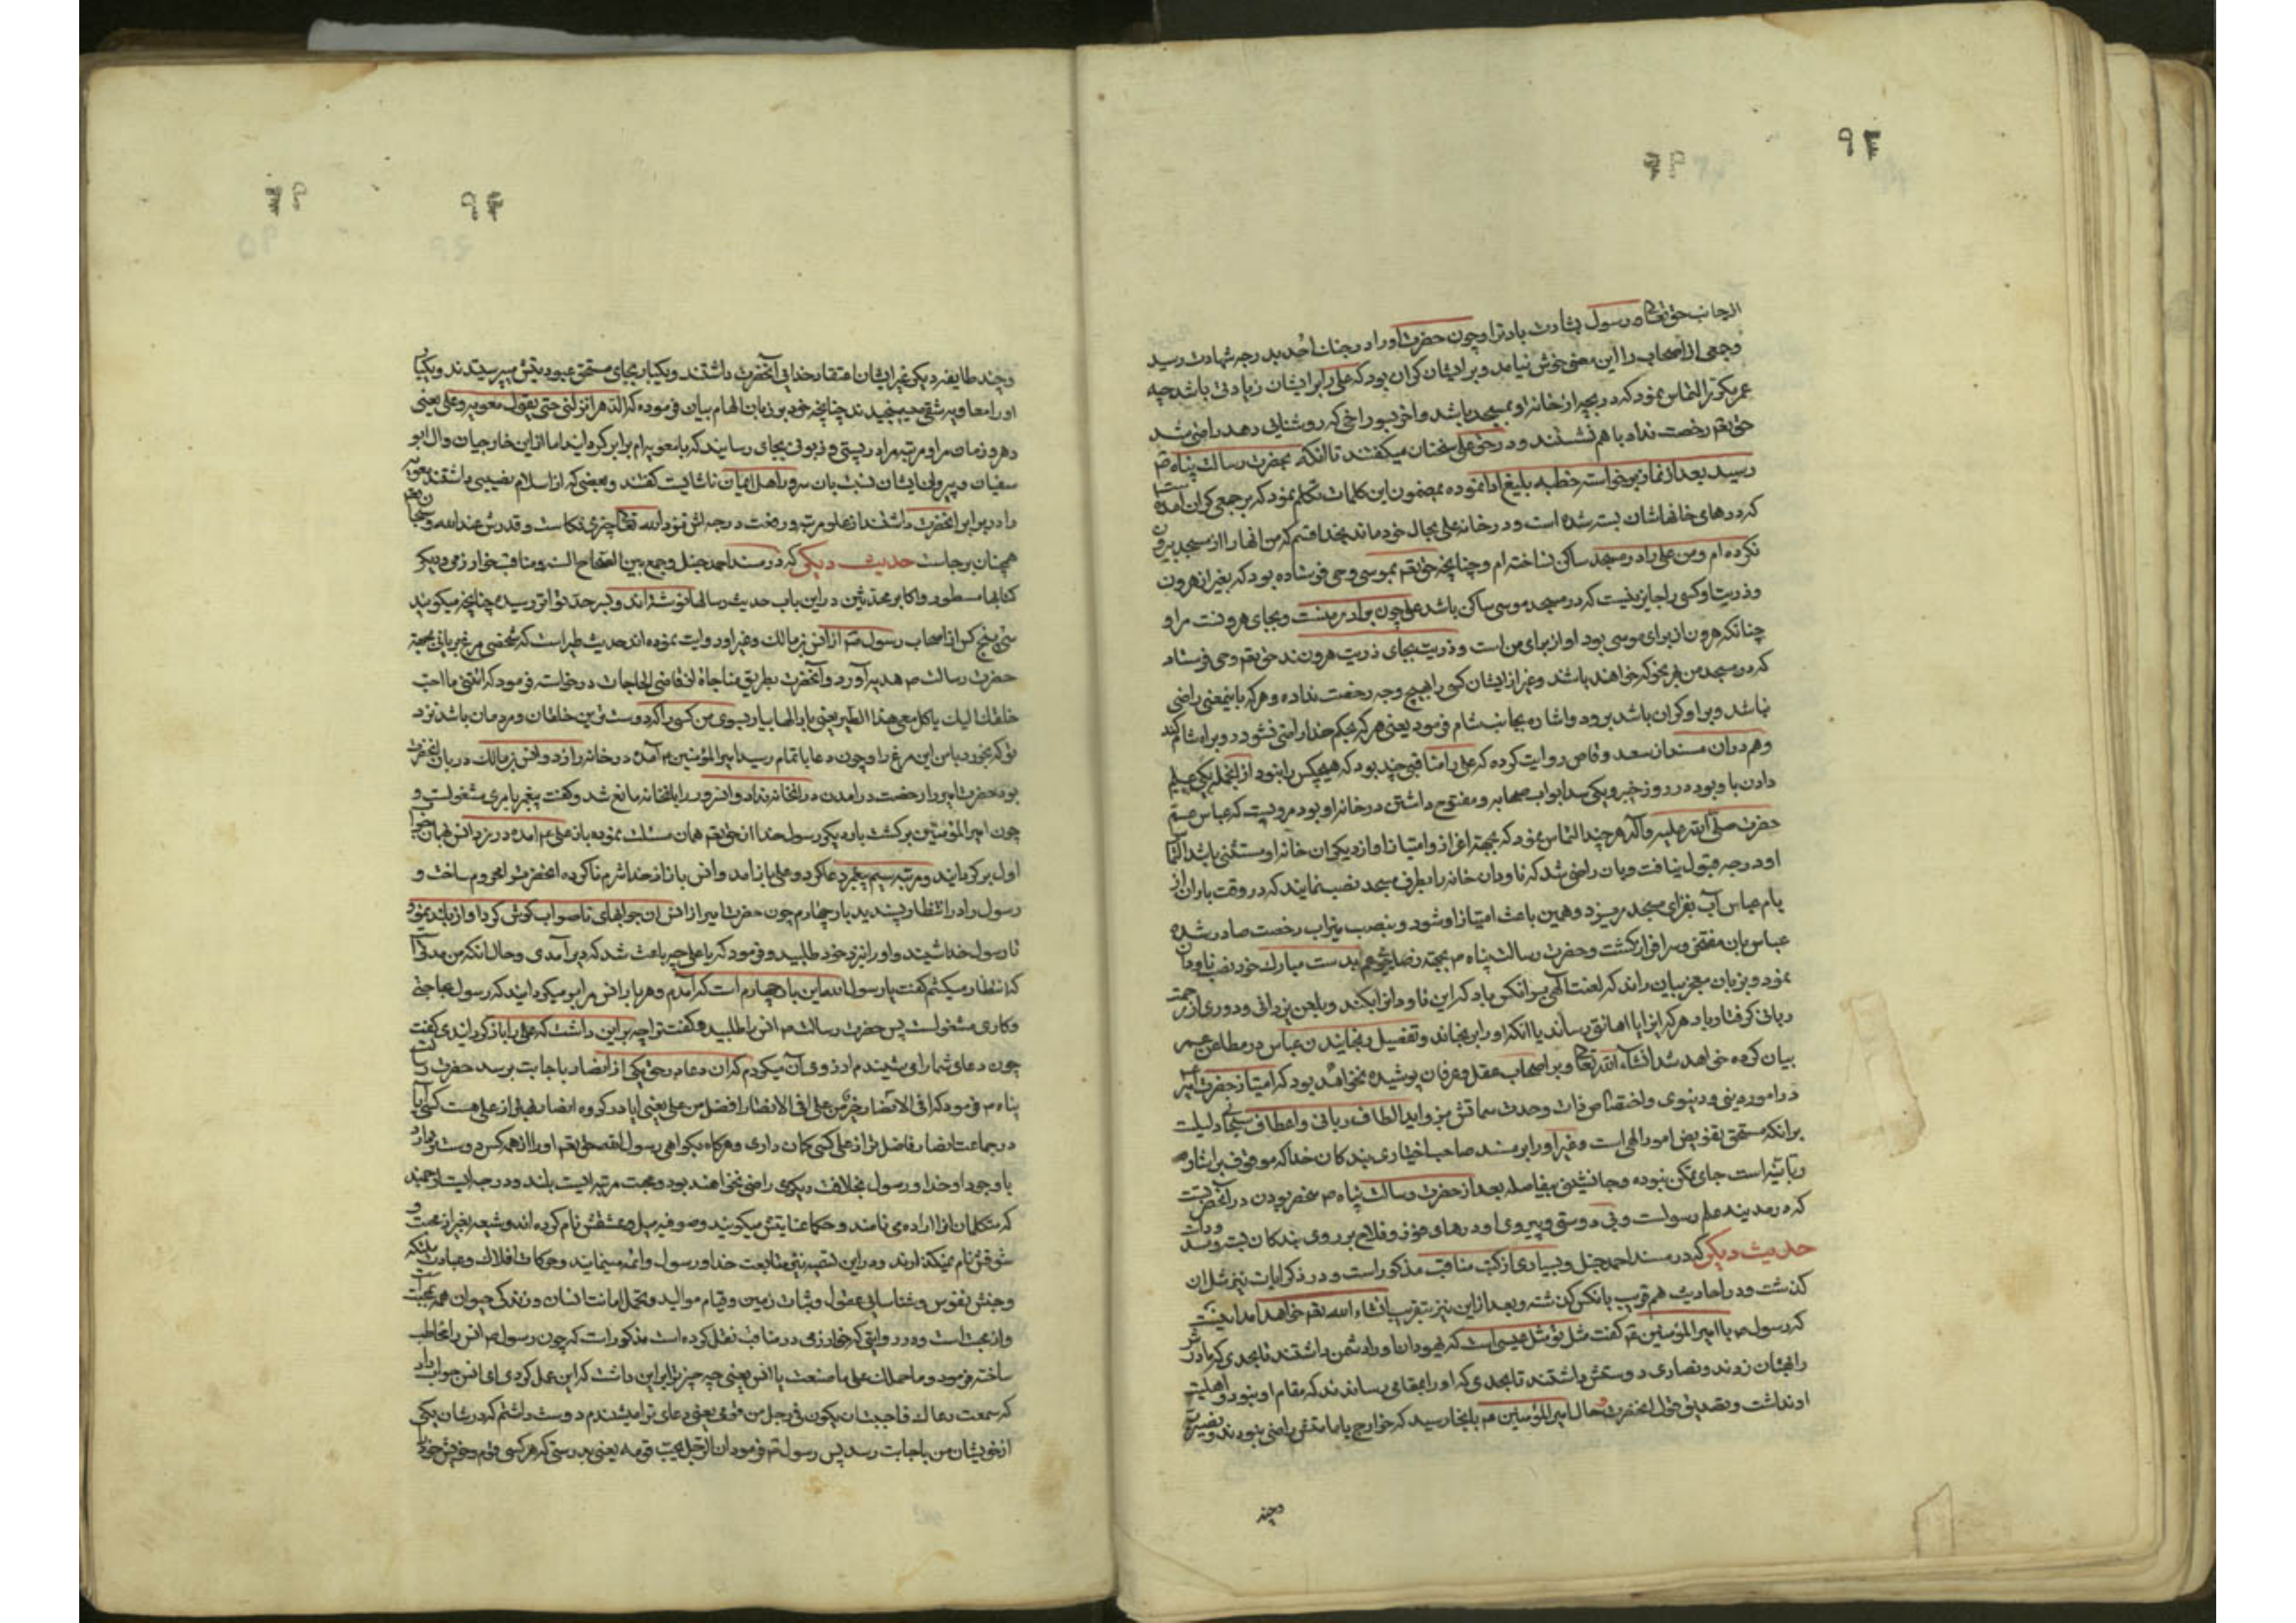 از جانب حق تعالی و رسول بشارت باد ترا و چون حضرت او را در جنك احد بدرجه شهادت رسید
و جمعی از اصحاب را این معنی خوش نیامد و بر ایشان گران بود که علی را بر ایشان زیادتی باشد چه
عمر مکرر التماس نمود که دریچه از خانه او بمسجد باشد و آخر بسوراخی که روشنایی دهد راضی شد
حق تعم رخصت نداد با هم نشستند و در حق علی سخنان میگفتند تا آنکه بحضرت رسالت پناه ص
رسید بعد از نماز برخواسته خطبه بلیغ ادا نموده بمضمون این کلمات تکلم نمود که بر جمعی گران آمده
که درهای خانهاشان بسته شده است و در خانه علی بحال خود مانده بخدا قسم که من انها را از مسجد بیرون
نکرده ام و من علی را در مسجد ساکن نساخته ام و چنانچه حق تعم بموسی وحی فرستاده بود که بغیر از هرون
و ذریت او کسی را جایز نیست که در مسجد موسی ساکن باشد علی چون برادر منست و بجای هرونست مرا و
چنانکه هرون از برای موسی بود او از برای من است و ذریت بجای ذریت هرونند حق تعم وحی فرستاد
که در مسجد من هر نحو که خواهند باشند و غیر از ایشان کسی را بهیچ وجه رخصت نداده و هر که باینمعنی راضی
نباشد و بر او گران باشد برود و اشاره بجانب شام فرمود یعنی هر که بحکم خدا راضی نشود رو براه شام کند
و هم در ان مسند از سعد وقاص روایت کرده که علی را مناقبی چند بود که هیچکس را نبود از انجمله یکی علم
دادن باو بود در روز خیبر و یکی سد ابواب صحابه و مفتوح داشتن در خانه او بود مرویست که عباس عم
حضرت صلی الله علیه و آله هر چند التماس نمود که بجهة اعزاز و امتیاز او از دیگران خانه او مستثنی باشد التما
او درجه قبول نیافت و بان راضی شد که ناودان خانه را بطرف مسجد نصب نمایند که در وقت باران از
بام عباس آب بفرای مسجد بریزد و همین باعث امتیاز او شود و بنصب میزاب رخصت صادر شده
عباس بان مفتخر و سرافراز گشت و حضرت رسالت پناه ص بجهة رضای عم بدست مبارك خود نصب ناودان
نمود و بزبان معجز بیان راند که لعنت الهی بر انکس باد که این ناودانرا بکند و بلعن یزدانی و دوری از رحمت
ربانی گرفتار باد هر که انرا یا اهانتی رساند یا انکه او را برنجاند و تفصیل رنجانیدن عباس در مطاعن عمر
بیان کرده خواهد شد انشاء الله تعالی و بر اصحاب عقل و عرفان پوشیده نخواهد بود که امتیاز حضرت امیر
در امور دینی و دنیوی و اختصاص ذات وحدت سماتش بمزواید الطاف ربانی و اعطاف سبحانی دلیلست
بر انکه مستحق تفویض امور الهی است و غیر او را بر مسند صاحب اختیاری بندکان خدا که موقوف بر اشاره
ربانیه است جای تمکن نبوده و جانشینی بیفاصله بعد از حضرت رسالت پناه ص منحصر بودن در آنحضرتست
که در مدینه علم رسولست و بی دوستی و پیروی او درهای فوز و فلاح بر روی بندکان بسته و سد
حدیث دیکر که در مسند احمد حنبل و بسیاری از کتب مناقب مذکور است و در ذکر ایات نیز مثل ان
کذشت و در احادیث هم قریب بانکس کذشته و بعد از این نیز بتقریب انشاء الله تعم خواهد آمد اینست
که رسول ص با امیر المؤمنین ع گفت مثل تو مثل عیسی است که یهودان او را دشمن داشتند تا بحدی که مادرش
را بهتان زدند و نصاری دوستش داشتند تا بحدی که او را بمقامی رساندند که مقام او نبود و اهلیت
او نداشت و تصدیق قول انحضرت حال امیر المؤمنین ع بانجا رسید که خوارج بامامتش راضی نبودند و نصیریه
و چند
و چند طایفه دیکر غیر ایشان اعتقاد خدایی آنحضرت داشتند و یکباره بجای مستحق عبودیتش میپرستیدند و یکبا
او را معاویه شقی میسنجیدند چنانچه خود بر زبان الهام بیان فرموده که الدهر انزلنی حتی یقول معویه و علی یعنی
دهر و زمان مرا و مرتبه مرا در پستی و زبونی بجای رسانید که با معویه ام برابر کرده اند اما از این خارجیان و ال ابو
سفیان و پیروان ایشان نسبت بان سرور اهل ایمان ناشایست گفتند و بعضی که از اسلام نصیبی داشتند معویه
را در برابر انحضرت داشتند از علو مرتبه و رفعت درجه اش نزد الله تعالی چیزی نکاست و قدرش عند الله و سبحانه
همچنان برجاست حدیث دیکر که در مسند احمد حنبل و جمع بین الصحاح السته و مناقب خوارزمی و دیکر
کتابها مسطور و اکابر محدثین در این باب حدیث رسالها نوشته اند و بسرحد تواتر رسیده چنانچه میگویند
سی و پنج کس از اصحاب رسول ص از انس بن مالك و غیر او روایت نموده اند حدیث طیر است که شخصی مرغ بریانی بجهة
حضرت رسالت ص هدیه آورد و آنحضرت بطریق مناجاة از قاضی الحاجات درخواسته فرمود که ائتنی باحب
خلقك الیك یاکل معی هذا الطیر یعنی بار الها بیار بسوی من کسی را که دوسترین خلقان و مردمان باشد نزد
تو که بخورد با من این مرغ را و چون دعا باتمام رسید امیر المؤمنین ع آمده در خانه را زد و انس بن مالك دربان انحضرت
بود حضرت امیر را رخصت درامدن در انخانه نداد و انسرور را بانخانه مانع شد و گفت پیغمبر بامری مشغولست و
چون امیر المؤمنین برکشت بار دیکر رسول خدا از حق تعم همان مسئلت نموده باز علی ع آمده در بزد انس همان جواب
اول برگردانید و مرتبه سیم پیغمبر دعا کرد و علی باز آمد و انس باز از خدا شرم ناکرده انحضرت را محروم ساخت و
رسول را در انتظار پسندید بار چهارم چون حضرت امیر از انس ان جوابهای ناصواب گوش کرد اواز بلند نمود
تا رسول خدا شنید و او را نزد خود طلبید و فرمود که یا علی چه باعث شد که دیر آمدی و حال انکه من مدتی
که انتظار میکشم گفت یا رسول الله این بار چهارم است که آمدم و هر بار انس مرا بر میگرداند که رسول بحاجتی
و کاری مشغولست پس حضرت رسالت ص انس را طلبید و گفت ترا چه بر این داشت که علی را باز گرداندی گفت
چون دعای شما را می شنیدم ارزوی آن میکردم که ان دعا در حق یکی از انصار باجابت برسد حضرت رسالت
پناه ص فرمود که افی الانصار خیر من علی افی الانصار افضل من علی یعنی ایا در گروه انصار بهتر از علی هست کسی آیا
در جماعت انصار فاضل تر از علی کسی گمان داری و هرگاه بگواهی رسول الله حق تعم او را از همه کس دوستر دارد
با وجود او خدا و رسول بخلافت دیکری راضی نخواهند بود و محبت مرتبه ایست بلند و درجه ایست ارجمند
که متکلمان انرا اراده می نامند و حکما عنایتش میگویند و صوفیه میل و عشقش نام کرده اند و شیعه بغیر از محبت و
شوقش نام نمیکذارند و در این لقبیه نیز متابعت خدا و رسول و ائمه مینمایند و حرکات افلاك و عبادت ملئکه
و جنبش نفوس و شناسایی عقول و ثبات زمین و قیام موالید و تحمل امانت انسان و زندکی حیوان همه بمحبت
و از محبت است و در روایتی که خوارزمی در مناقب نقل کرده است مذکور است که چون رسول ص انس را مخاطب
ساخته فرمود و ما حملك علی ما صنعت یا انس یعنی چه چیز ترا بر این داشت که این عمل کردی ای انس جواب داد
که سمعت دعاك فاحببت ان یکون فی رجل من قومی یعنی دعای ترا میشنیدم دوست داشتم که در شان یکی
از خویشان من باجابت رسد پس رسول ص فرمود ان الرجل یحب قومه یعنی بدرستی که هر کسی قوم و خویش خود